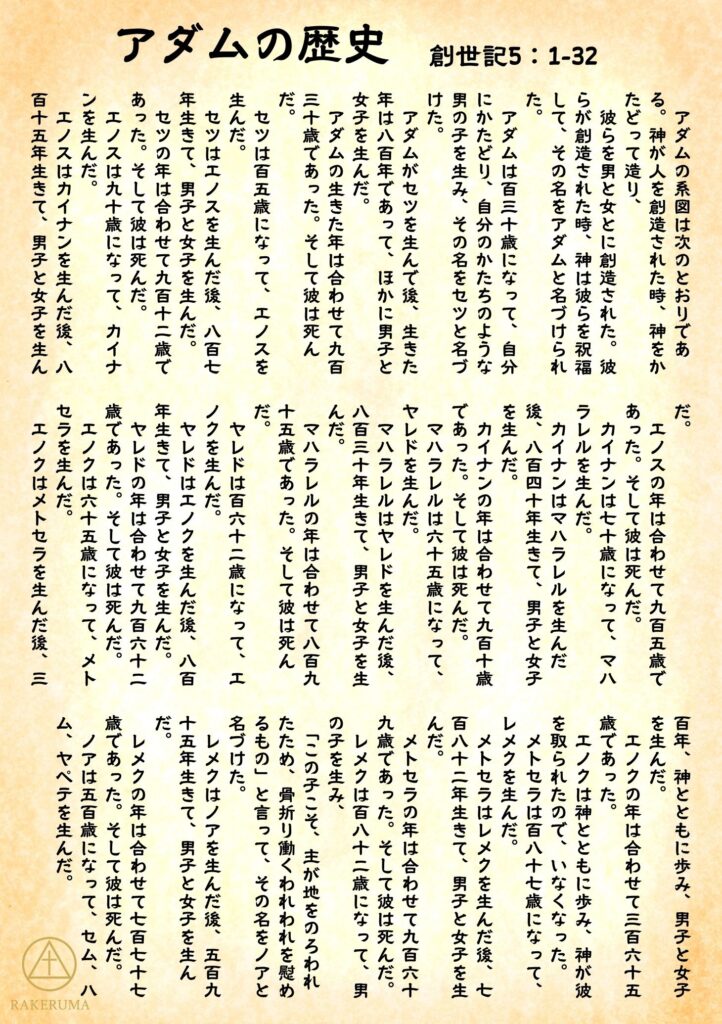 アダムの歴史
創世記5：1-32
アダムの系図は次のとおりであ
る。神が人を創造された時、神をか
たどって造り、
彼らを男と女とに創造された。彼
らが創造された時、神は彼らを祝福
して、その名をアダムと名づけられ
た。
アダムは百三十歳になって、自分
にかたどり、自分のかたちのような
男の子を生み、その名をセツと名づ
けた。
アダムがセツを生んで後、生きた
年は八百年であって、ほかに男子と
女子を生んだ。
アダムの生きた年は合わせて九百
三十歳であった。そして彼は死ん
だ。
セツは百五歳になって、エノスを
生んだ。
セツはエノスを生んだ後、八百七
年生きて、男子と女子を生んだ。
セツの年は合わせて九百十二歳で
あった。そして彼は死んだ。
エノスは九十歳になって、カイナ
ンを生んだ。
エノスはカイナンを生んだ後、八
百十五年生きて、男子と女子を生ん
だ。
エノスの年は合わせて九百五歳で
あった。そして彼は死んだ。
カイナンは七十歳になって、マハ
ラレルを生んだ。
カイナンはマハラレルを生んだ
後、八百四十年生きて、男子と女子
を生んだ。
カイナンの年は合わせて九百十歳
であった。そして彼は死んだ。
マハラレルは六十五歳になって、
ヤレドを生んだ。
マハラレルはヤレドを生んだ後、
八百三十年生きて、男子と女子を生
んだ。
マハラレルの年は合わせて八百九
十五歳であった。そして彼は死ん
だ。
ヤレドは百六十二歳になって、エ
ノクを生んだ。
ヤレドはエノクを生んだ後、八百
年生きて、男子と女子を生んだ。
ヤレドの年は合わせて九百六十二
歳であった。そして彼は死んだ。
エノクは六十五歳になって、メト
セラを生んだ。
エノクはメトセラを生んだ後、三
百年、神とともに歩み、男子と女子
を生んだ。
エノクの年は合わせて三百六十五
歳であった。
エノクは神とともに歩み、神が彼
を取られたので、いなくなった。
メトセラは百八十七歳になって、
レメクを生んだ。
メトセラはレメクを生んだ後、七
百八十二年生きて、男子と女子を生
んだ。
メトセラの年は合わせて九百六十
九歳であった。そして彼は死んだ。
レメクは百八十二歳になって、男
の子を生み、
「この子こそ、主が地をのろわれ
たため、骨折り働くわれわれを慰め
るもの」と言って、その名をノアと
名づけた。
レメクはノアを生んだ後、五百九
十五年生きて、男子と女子を生ん
だ。
レメクの年は合わせて七百七十七
歳であった。そして彼は死んだ。
ノアは五百歳になって、セム、ハ
ム、ヤペテを生んだ。
RAKERUMA